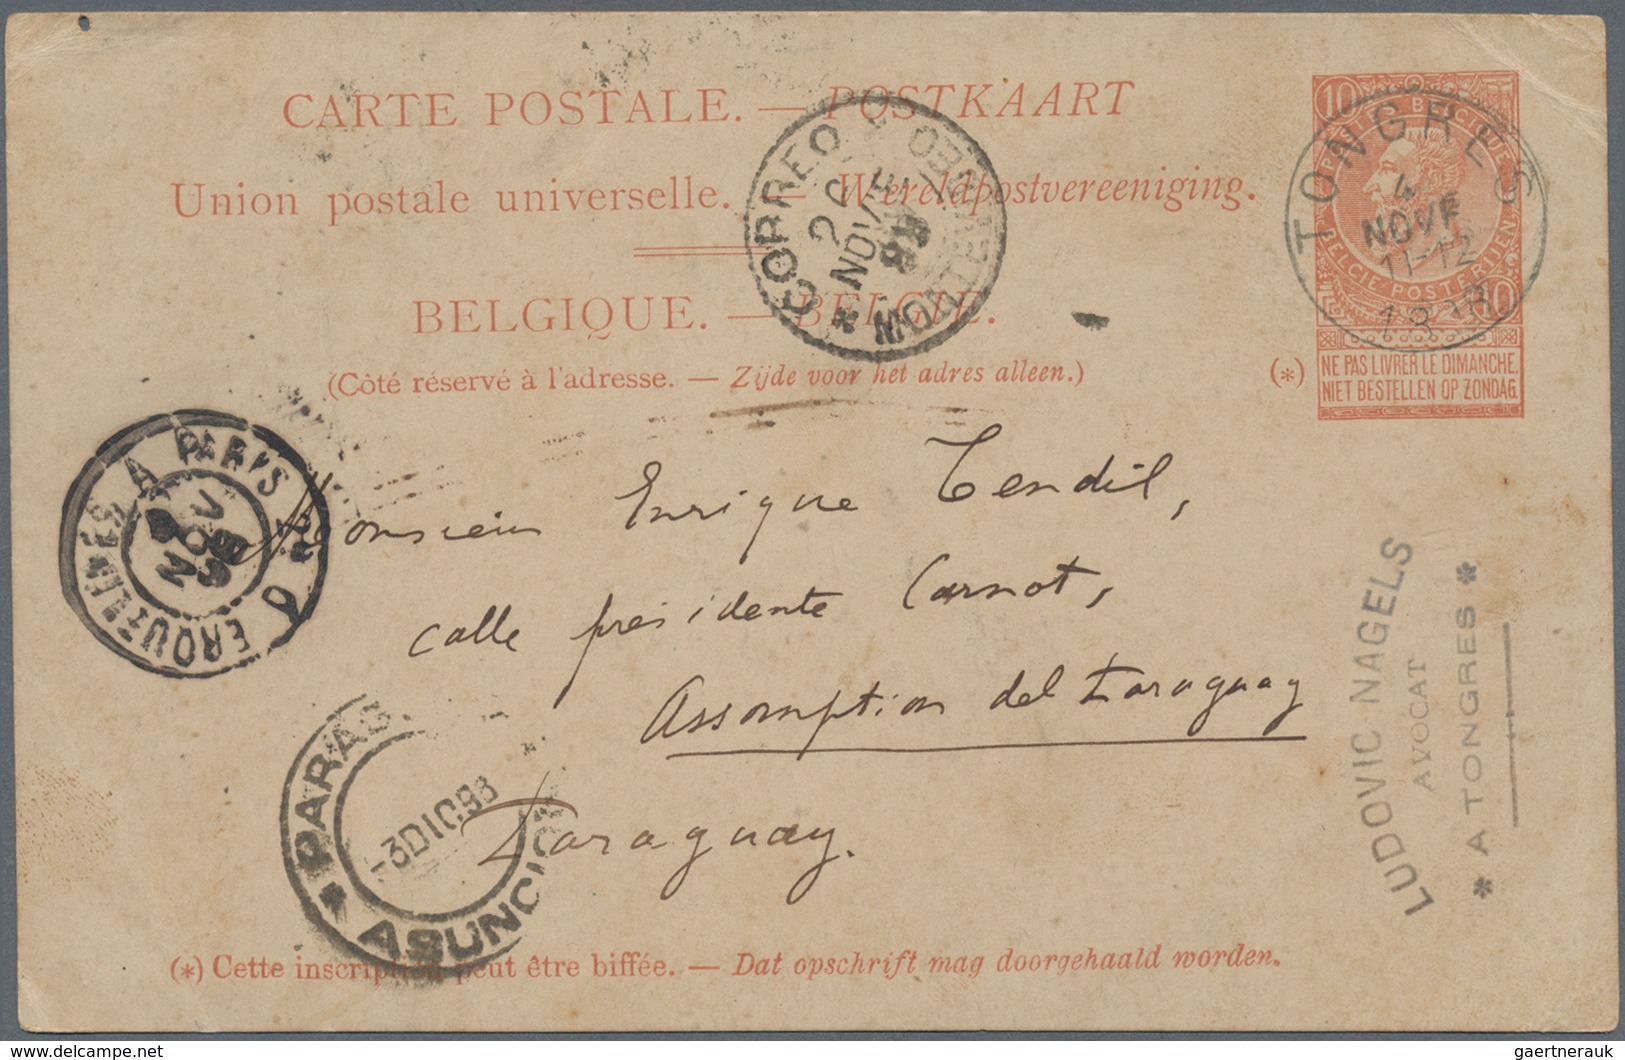 CARTE POSTALE. — POSTKAART
Union postale universelle. — Wereldpostvereeniging.
BELGIQUE. — BELGIË.
(Côté réservé à l'adresse. — Zijde voor het adres alleen.)
10 10
BELGIQUE
BELGIE POSTERIJEN
10
(*) NE PAS LIVRER LE DIMANCHE.
NIET BESTELLEN OP ZONDAG.
TONGRES
4
NOVE
11-12
CORREO
NOVE
98
MONTEVIDEO
ERQUELINES A PARIS
NOV
98
Monsieur Enrique Tendil,
calle présidente Carnot,
Assomption del Paraguay
Paraguay.
PARAGUAY
-3DIC.98
ASUNCION
LUDOVIC NAGELS
AVOCAT
* A TONGRES *
(*) Cette inscription peut être biffée. — Dat opschrift mag doorgehaald worden.
www.delcampe.net
gaertnerauk